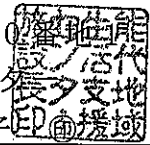 0番地
能代地域
生活支援
センター
施設長印
㊞